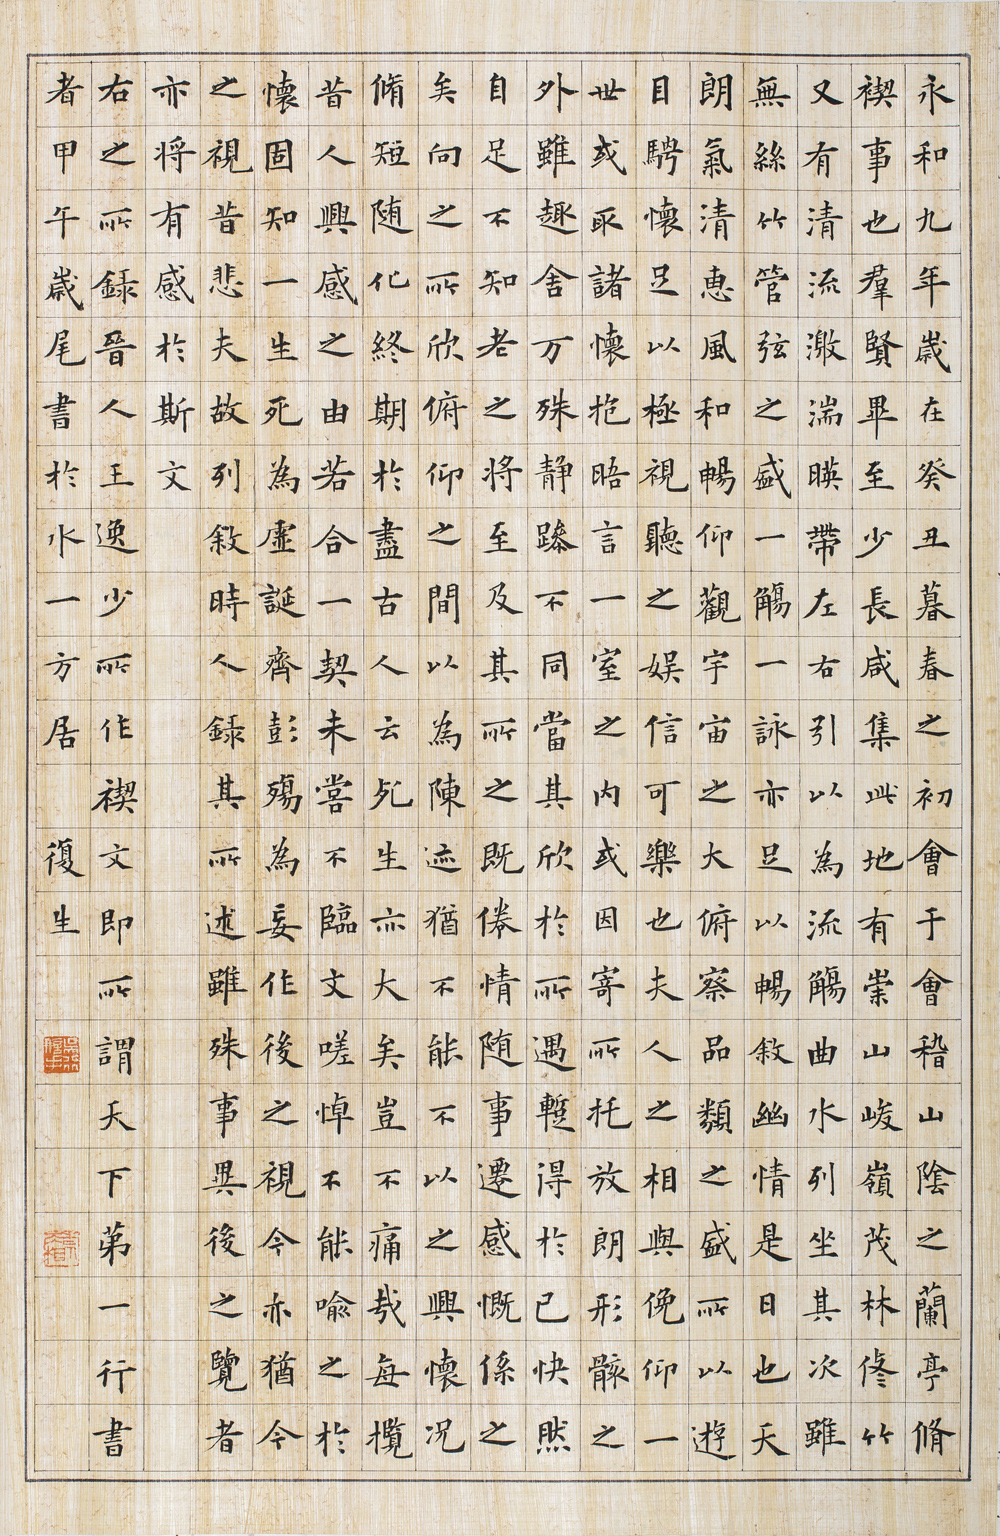 永和九年歲在癸丑暮春之初會于會稽山陰之蘭亭脩
禊事也羣賢畢至少長咸集此地有崇山峻嶺茂林俢竹
又有清流激湍暎帶左右引以為流觴曲水列坐其次雖
無絲竹管弦之盛一觴一詠亦足以暢敘幽情是日也天
朗氣清惠風和暢仰觀宇宙之大俯察品類之盛所以遊
目騁懷足以極視聽之娛信可樂也夫人之相與俛仰一
世或取諸懷抱晤言一室之内或因寄所托放朗形骸之
外雖趣舍万殊静躁不同當其欣於所遇蹔得於己快然
自足不知老之將至及其所之既倦情随事遷感慨係之
矣向之所欣俯仰之間以為陳迹猶不能不以之興懷况
脩短随化終期於盡古人云死生亦大矣豈不痛哉每攬
昔人興感之由若合一契未嘗不臨文嗟悼不能喻之於
懷固知一生死為虛誕齊彭殤為妄作後之視今亦猶今
之視昔悲夫故列敘時人録其所述雖殊事異後之覽者
亦将有感於斯文
右之所録晉人王逸少所作禊文即所謂天下第一行書
者甲午歲尾書於水一方居 復生